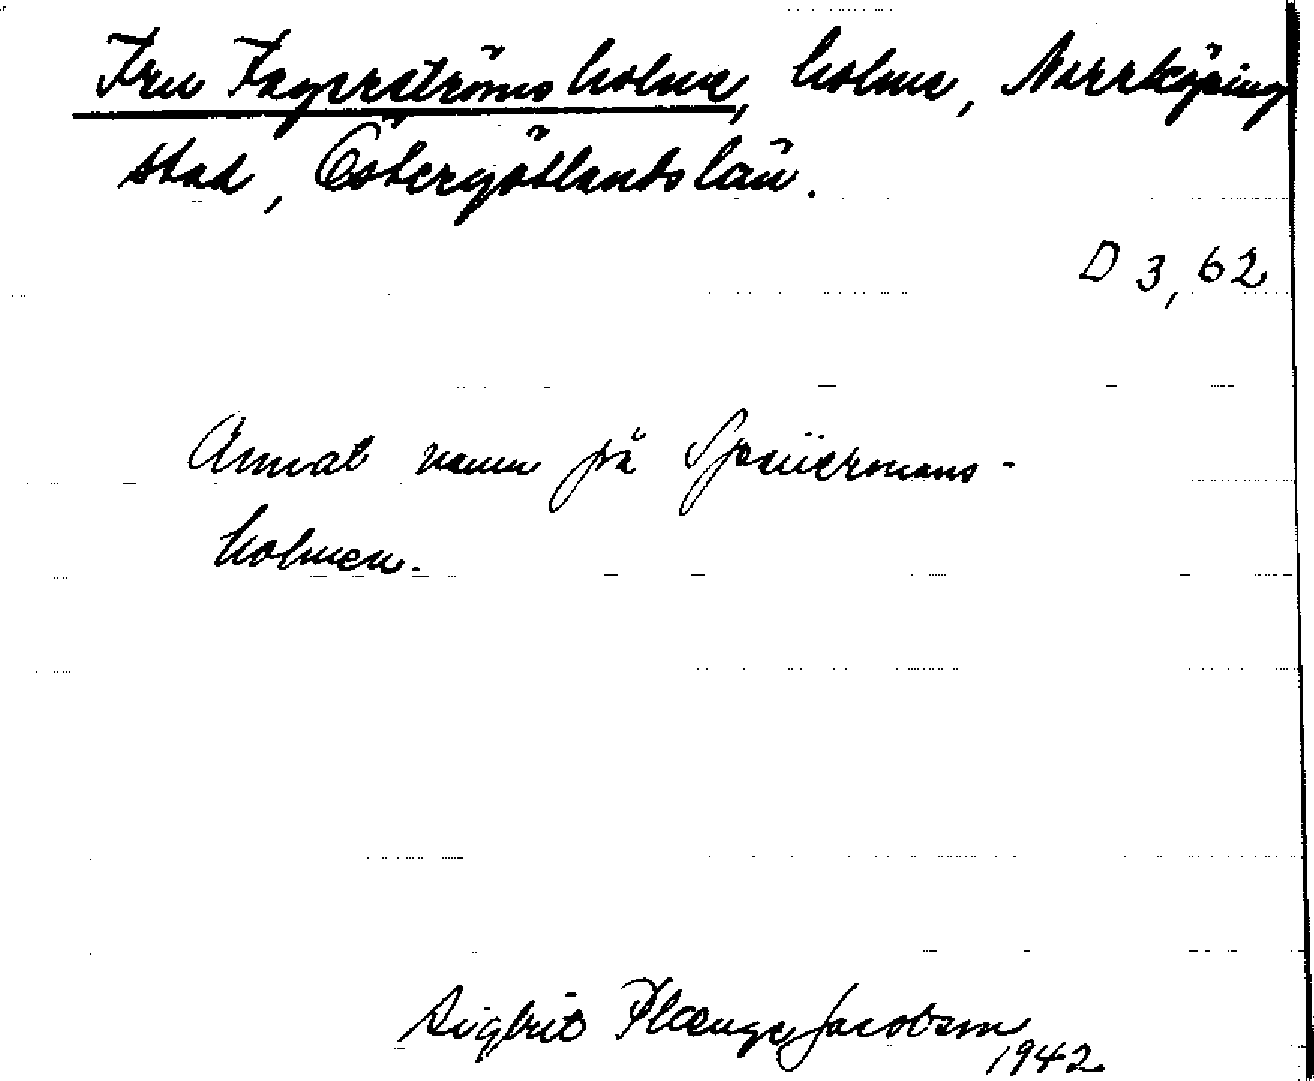 Fru Fagerströms holme, holme, Norrköping
stad, Östergötlands län.
D 3, 62
Annat namn på Spaiiermans-
holmen.
Sigbrit Plænge Jacobson
1942